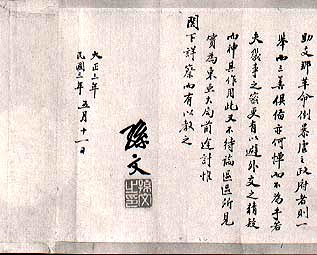 助支那革命倒暴虐之政府者則一
舉而三善俱備亦何憚而不為乎若
夫發手之密更有以避外交之猜疑
而神其作用此又不待論區區所見
實為東亞大局前途計惟
閣下詳察而有以教之
孫文
大正三年
民國三年 五月十一日